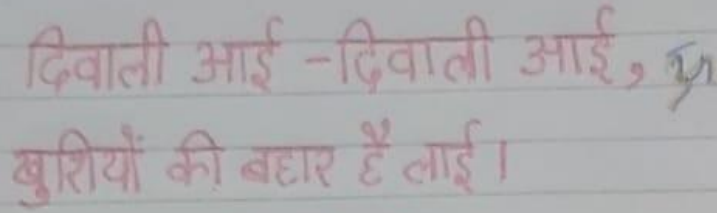 दिवाली आई -दिवाली आई,
खुशियों की बहार है लाई।